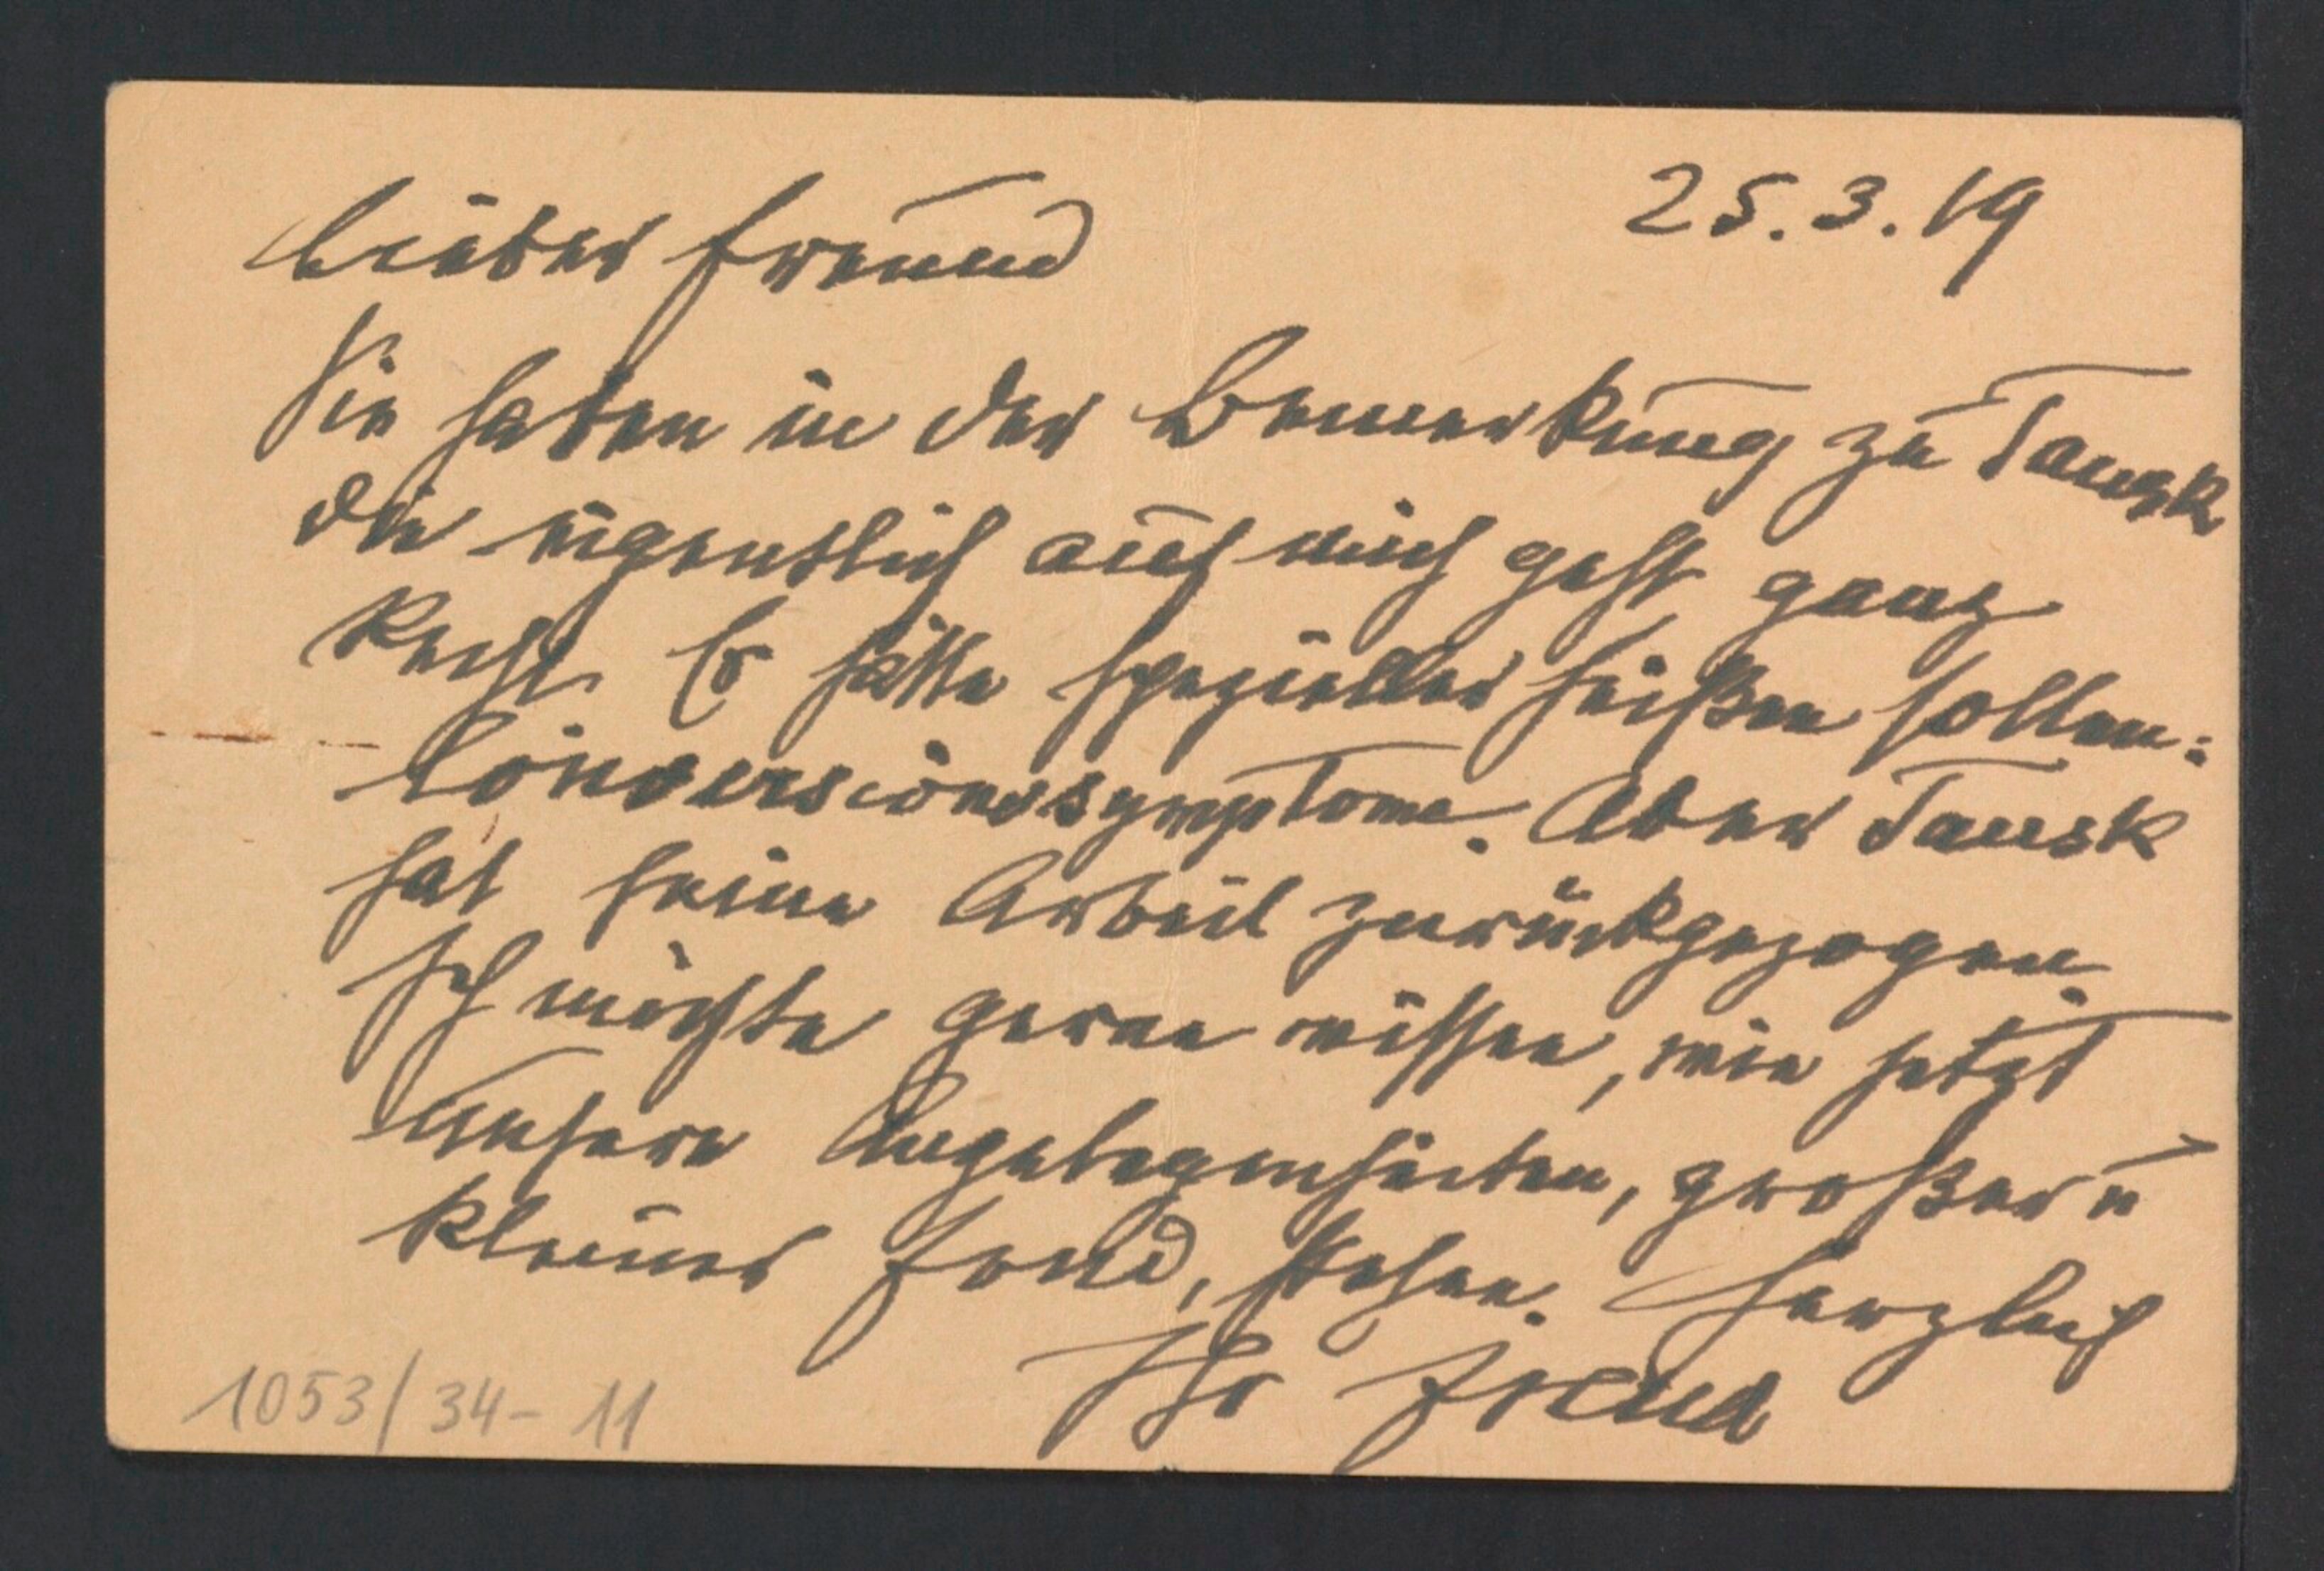 25.3.19
Lieber Freund
Sie haben in der Bemerkung zu Tausk
die eigentlich auf mich geht ganz
Recht. Es hätte spezieller heißen sollen:
Conversionssymptome. Aber Tausk
hat seine Arbeit zurückgezogen.
Ich möchte gerne wissen, wie jetzt
unsere Angelegenheiten, großer u
kleiner Fond, stehen. Herzlich
Ihr Freud
1053/34-11